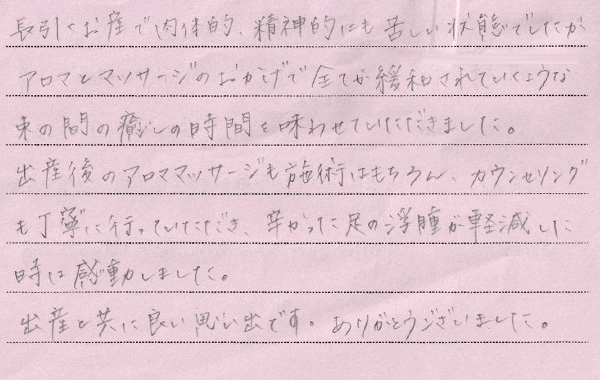 長引くお産で肉体的、精神的にも苦しい状態でしたが
アロマとマッサージのおかげで全てが緩和されていくような
束の間の癒しの時間を味わせていただきました。
出産後のアロママッサージも施術はもちろん、カウンセリング
も丁寧に行っていただき、辛かった足の浮腫が軽減した
時は感動しました。
出産と共に良い思い出です。ありがとうございました。